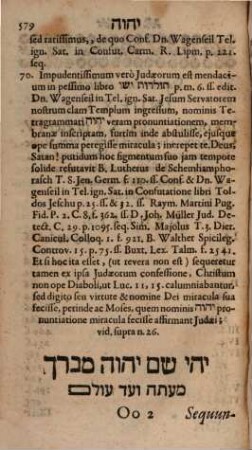 579 יהוה
sed ratissimus, , de quo Conf. Dn. Wagenseil Tel.
ign. Sat. in Confut. Carm. R. Lipm. p. 221.
seq.
70. Impudentissimum verò Judæorum est mendaci-
um in pessimo libro תולדות ישו p. m. 6. ss. edit.
Dn. Wagenseil in Tel. ign. Sat. Jesum Servatorem
nostrum clam Templum ingressum, nominis Te-
tragrammati יהוה veram pronuntiationem, mem-
branæ inscriptam, furtim inde abstulisse, ejusque
ope summa peregisse miracula; increpet te Deus,
Satan! putidum hoc figmentum suo jam tempore
solide refutavit B. Lutherus de Schemhampho-
rasch T. 8. Jen. Germ. f. 110. ss. Conf. & Dn. Wa-
genseil in Tel. ign. Sat. in Confutatione libri Tol-
dos Jeschu p. 25. ss. & 32. ss. Raym. Martini Pug.
Fid. P. 2. C. 8. f. 362. ss. D. Joh. Müller Jud. De-
tect. C. 29. p. 1095. seq. Sim. Majolus T. 3. Dier.
Canicul. Colloq. 1. f. 921, B. Walther Spicileg.
Controv. 15. p. 75. ss. Buxt. Lex. Talm. f. 2541.
Et si hoc ita esset, (ut revera non est) sequeretur
tamen ex ipsa Judæorum confessione, Christum
non ope Diaboli, ut Luc. 11, 15. calumniabantur,
sed digito seu virtute & nomine Dei miracula sua
fecisse, perinde ac Moses, quem nominis יהוה pro-
nuntiatione miracula fecisse affirmant Judæi:
vid. supra n. 26.
יהי שם יהוה מברך
מעתה ועד עולם
Oo 2 Sequun-